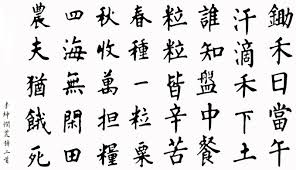 鋤禾日當午
汗滴禾下土
誰知盤中餐
粒粒皆辛苦
春種一粒粟
秋收萬担糧
四海無閑田
農夫猶餓死
李紳憫農詩二首